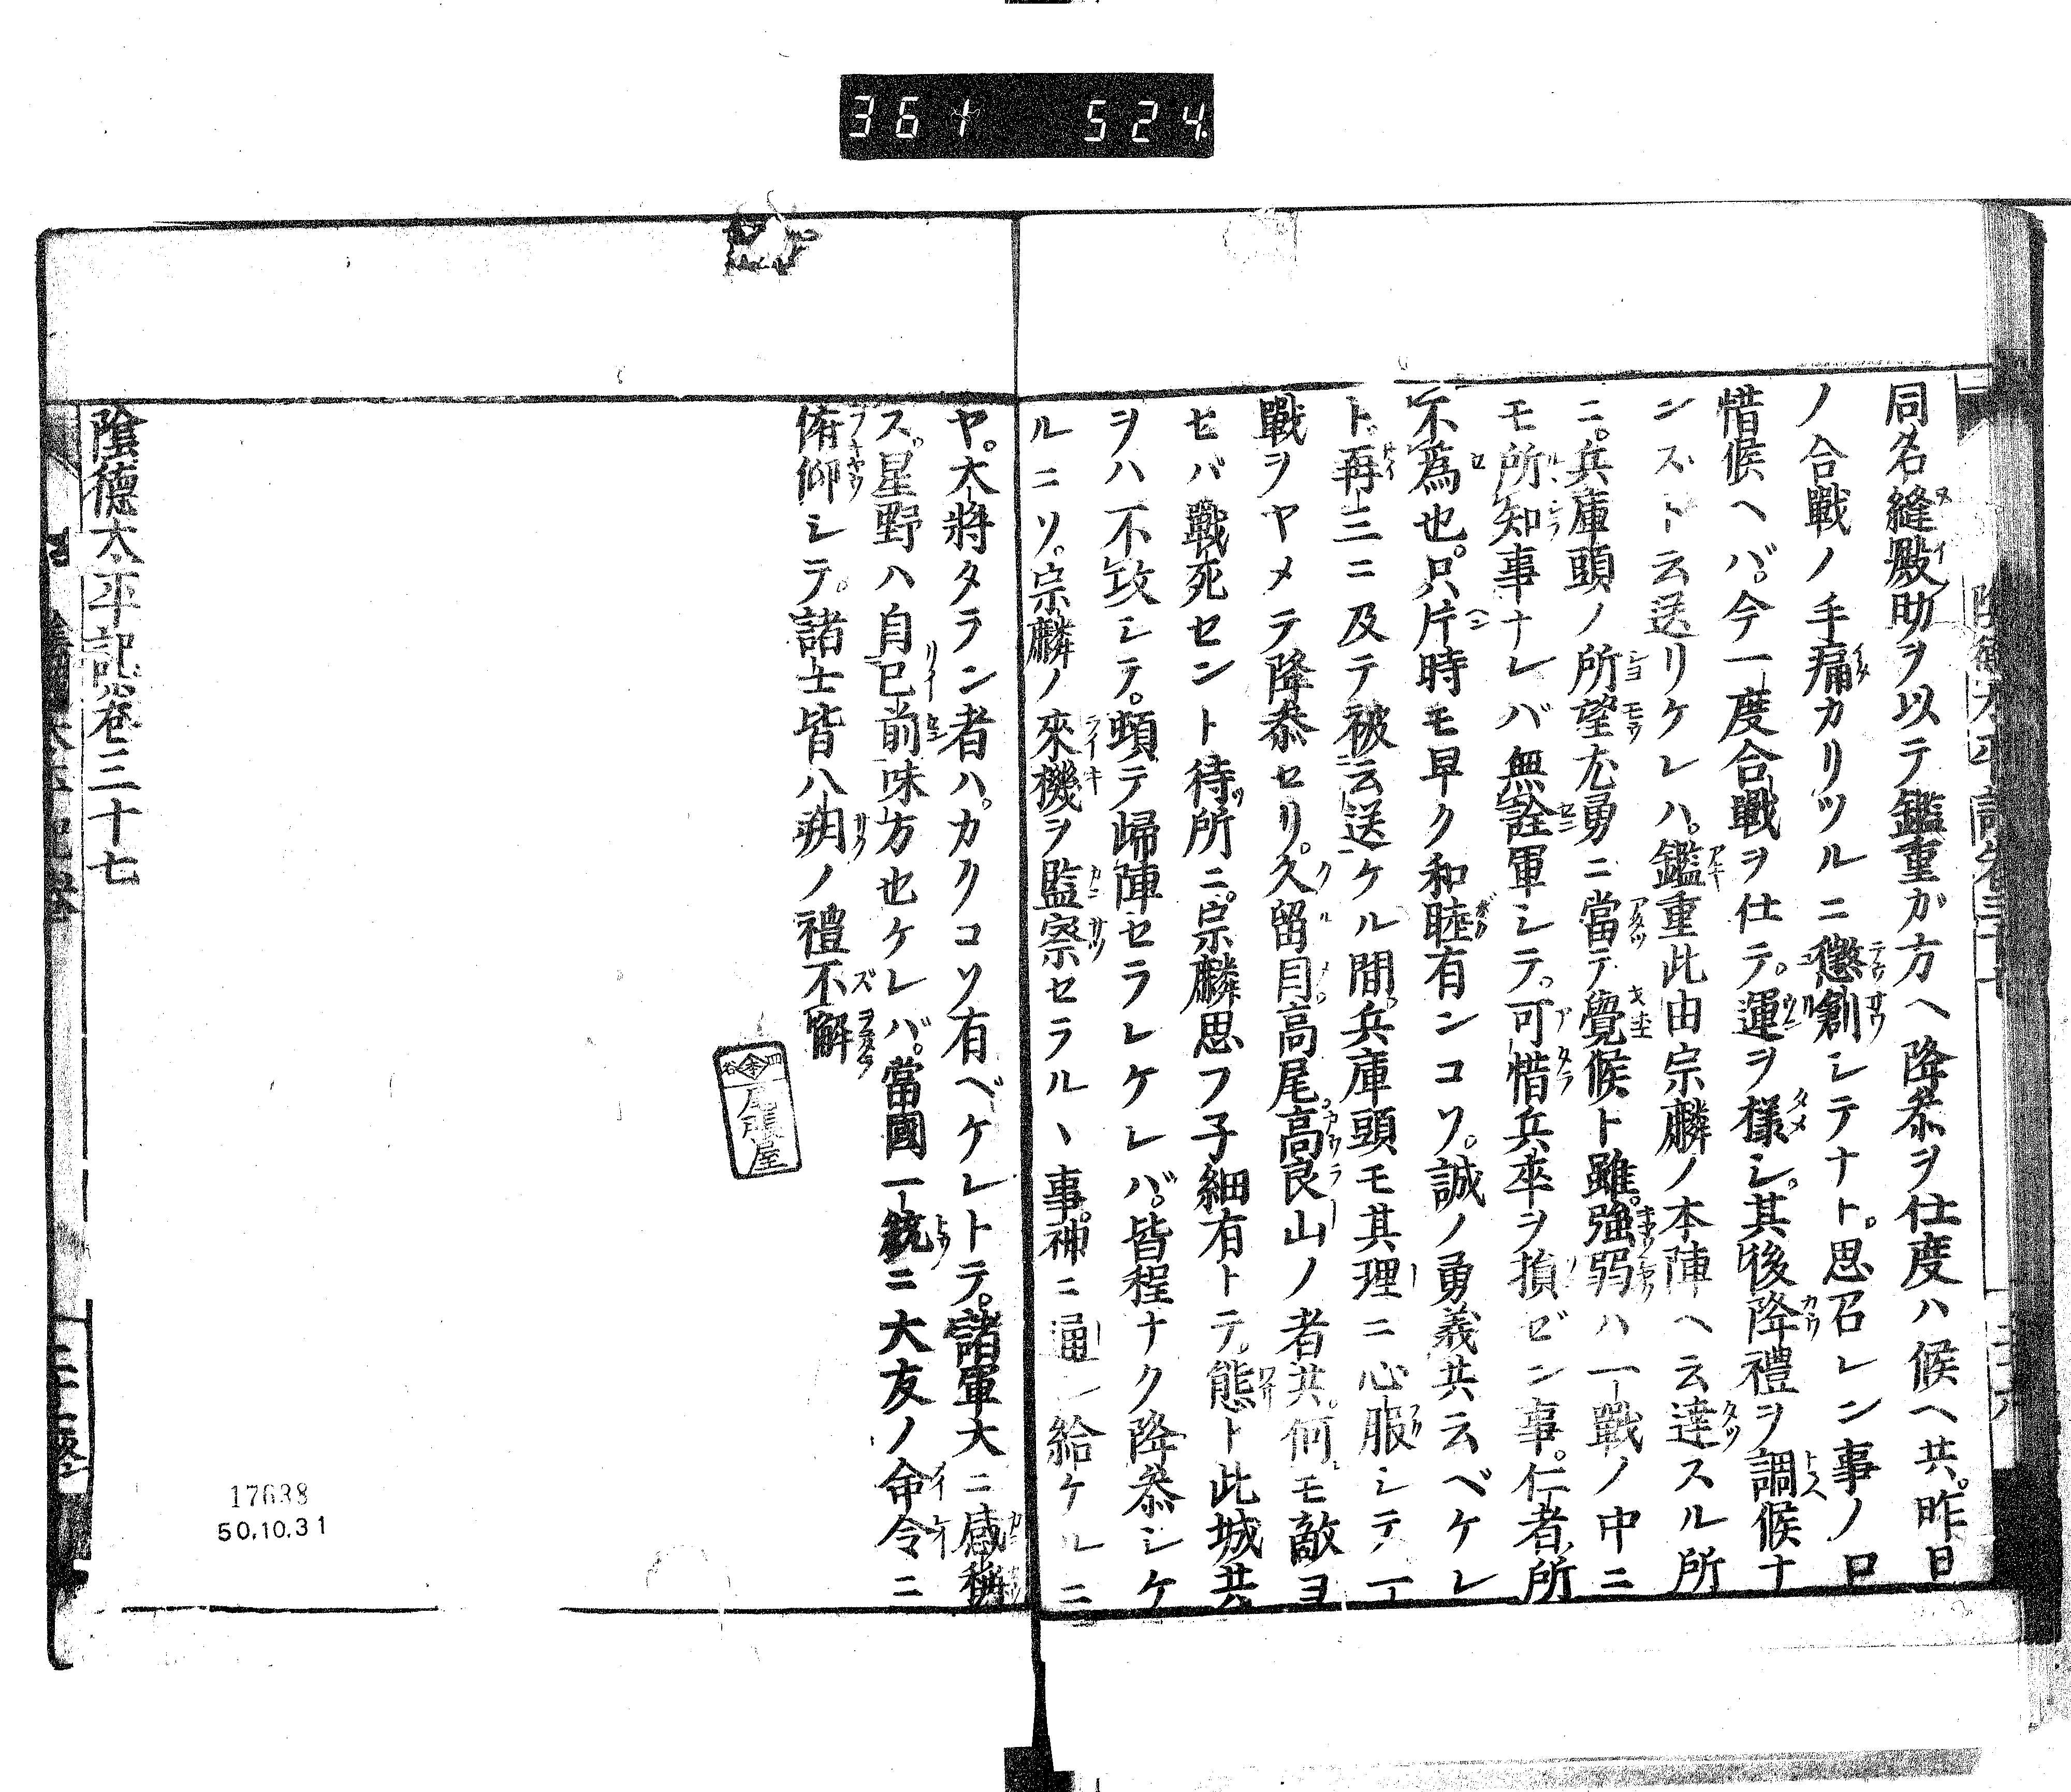 361 524
同名縫殿助ヲ以テ鑑重カ方ヘ降叅ヲ仕度ハ候ヘ共。昨日
ノ合戰ノ手痛カリツルニ懲創シテナト。思召レン事ノ口
惜候ヘバ。今一度合戰ヲ仕テ。運ヲ様シ。其後降禮ヲ調候ナ
ンズト云送リケレハ。鑑重此由宗麟ノ本陣ヘ云達スル所
ニ。兵庫頭ノ所望尤勇ニ當テ覺候ト雖。強弱ハ一戰ノ中ニ
モ所知事ナレバ無詮軍シテ。可惜兵卒ヲ損ゼン事。仁者所
不為也。只片時モ早ク和睦有ンコソ。誠ノ勇義共云ベケレ
ト。再三ニ及テ被云送ケル間。兵庫頭モ其理ニ心服シテ一
戰ヲヤメテ降叅セリ。久留目。高尾。高良山ノ者共。何モ敵ヨ
セバ戰死セント待所ニ。宗麟思フ子細有トテ。態ト此城共
ヲハ不攻シテ。頓テ歸陣セラレケレバ。皆程ナク降叅シケ
ルニソ。宗麟ノ來機ヲ監察セラルヽ事。神ニ通シ給ケルニ
ヤ。大將タラン者ハ。カクコソ有ベケレトテ。諸軍大ニ感稱
ス。星野ハ自已前味方也ケレバ。當國一統ニ大友ノ命令ニ
俯仰シテ。諸士皆八朔ノ禮不解
陰德太平記卷三十七
17638
50.10.31